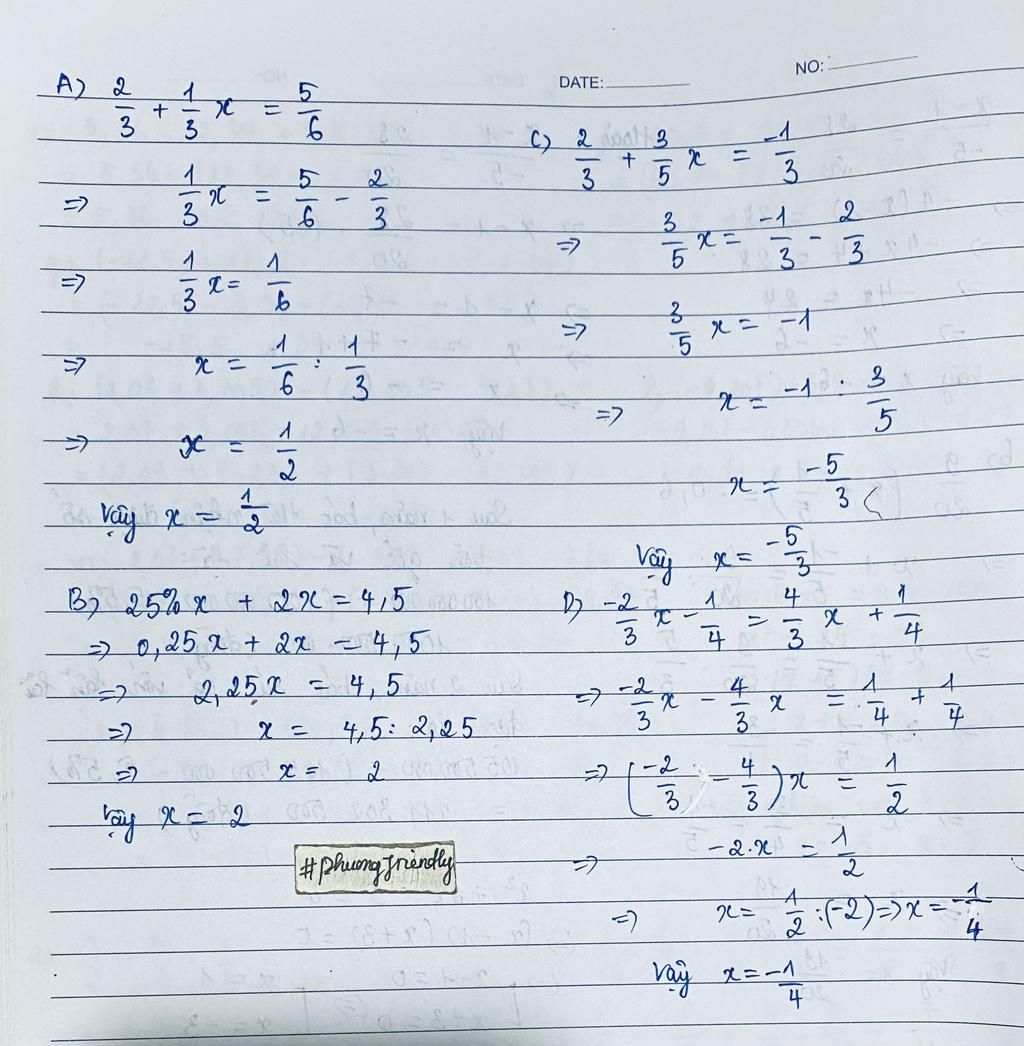 DATE:
NO:
A) 2/3 + 1/3 x = 5/6
=> 1/3 x = 5/6 - 2/3
=> 1/3 x = 1/6
=> x = 1/6 : 1/3
=> x = 1/2
Vậy x = 1/2
B) 25%x + 2x = 4,5
=> 0,25x + 2x = 4,5
=> 2,25x = 4,5
=> x = 4,5 : 2,25
=> x = 2
Vậy x = 2
#phuongfriendly
C) 2/3 + 3/5 x = -1/3
=> 3/5 x = -1/3 - 2/3
=> 3/5 x = -1
=> x = -1 : 3/5
x = -5/3
Vậy x = -5/3
D) -2/3 x - 1/4 = 4/3 x + 1/4
=> -2/3 x - 4/3 x = 1/4 + 1/4
=> (-2/3 - 4/3)x = 1/2
=> -2.x = 1/2
=> x = 1/2 : (-2) => x = -1/4
Vậy x = -1/4